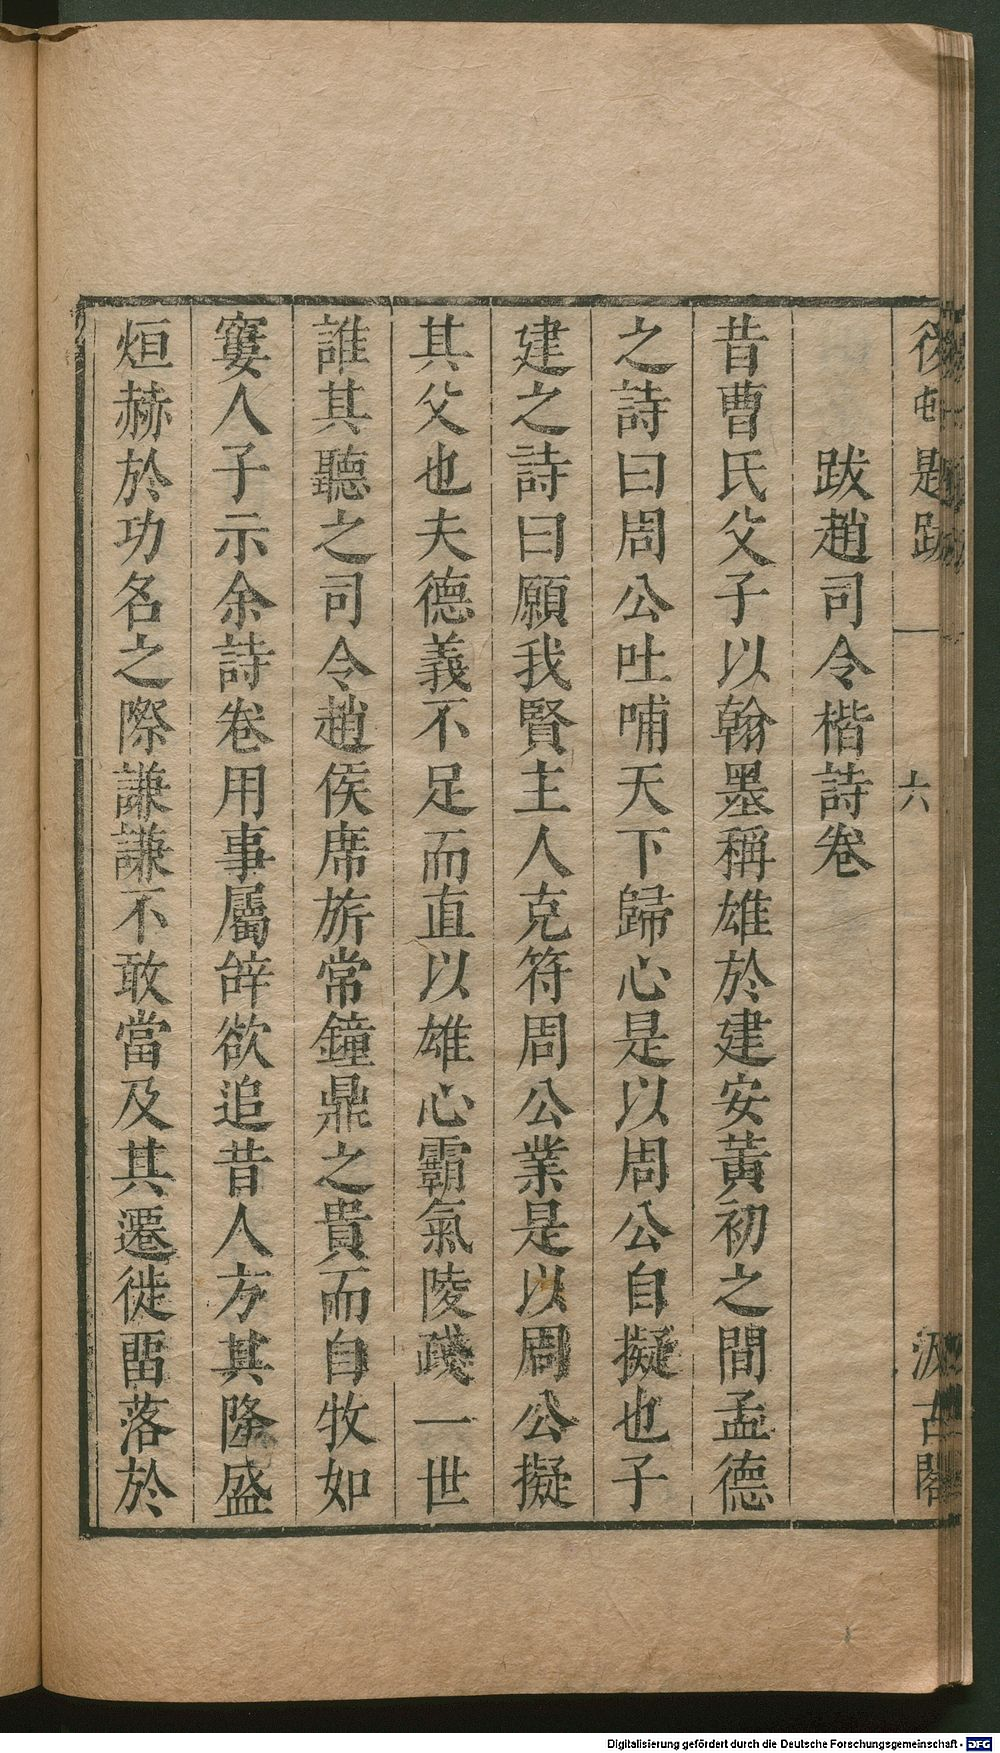 後村題跋
六
汲古閣
跋趙司令楷詩卷
昔曹氏父子以翰墨稱雄於建安黃初之間孟德
之詩曰周公吐哺天下歸心是以周公自擬也子
建之詩曰願我賢主人克符周公業是以周公擬
其父也夫德義不足而直以雄心霸氣陵踐一世
誰其聽之司令趙侯席旂常鐘鼎之貴而自牧如
窶人子示余詩卷用事屬辝欲追昔人方其隆盛
烜赫於功名之際謙謙不敢當及其遷徙畱落於
Digitalisierung gefördert durch die Deutsche Forschungsgemeinschaft - DFG